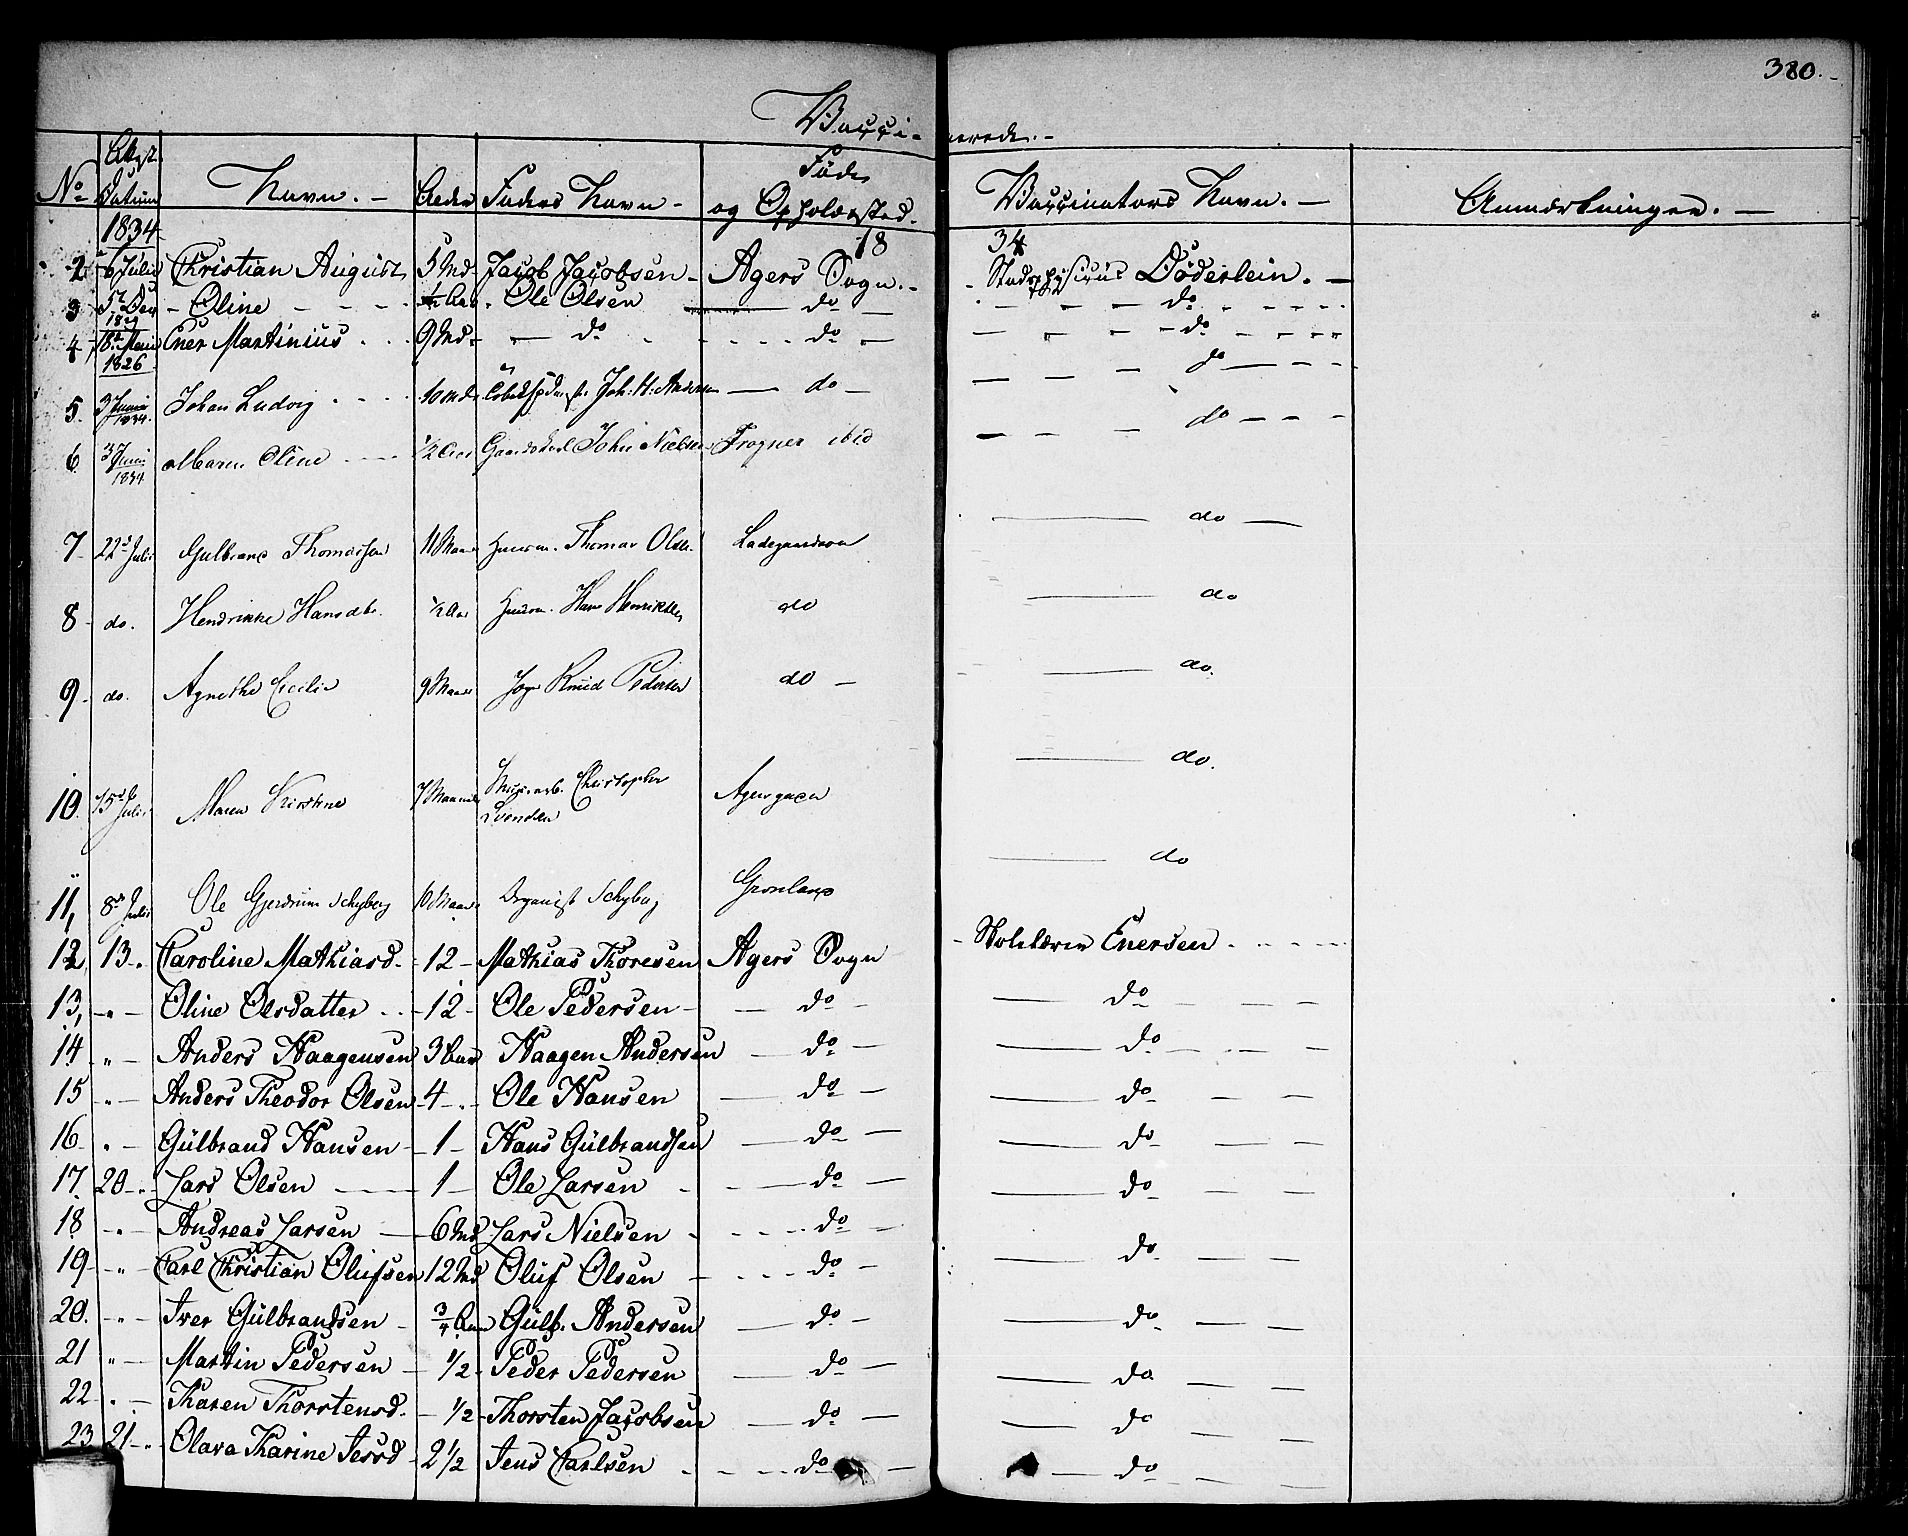 380.
Vacci- nerede.-
No Att. Datum Navn. - Alder Faders Navn - Føde og Opholdssted. Vaccinators Navn. - Anmærkninger. -
1834 18 34
2 6 Julii Christian August 5 Md- Jacob Jacobsen - Agers Sogn. - Stadsphysicus Döderlein. -
3 5t Dec 1829 - Oline - - - ½ Aar - Ole Olsen do - do
4 18t Marts 1826 Ener Martinius - - - 9 Md- - do - - do - do
5. 3 Junii 1834. Johan Ludvig - - - - 10 Md. Joh. H. Andersen - do - do
6 3 Junii 1834 Maren Oline - - ½ Aar Gaardskarl John Nielsen Frogner ibid do
7- 22d Julii Gulbrand Thomassen 11 Maan Huusm. Thomas Olsen Ladegaardsøen do
8- do. Hendrikke Hansdtr. ½ Aar Huusm. Hans Henriksen do do
9- do. Agnethe Cecilie 9 Maan Knud Pedersen do - do.
10. 15d Julii Maren Kirstine 7 Maaneder Christopher Svendsen do.
11, 8de Julii Ole Gjerdrum Schyberg 10 Maan Organist Schyberg Grønland do
12, 13 - Caroline Mathiasd. - 12 - Mathias Thoresen Agers Sogn - Skolelærer Enersen
13, - " - Oline Olsdatter - 12 - Ole Pedersen - do - do
14 " - Anders Haagensen 3 Aar Haagen Andersen - do - do
15 " - Anders Theodor Olsen - 4 - " - Ole Hansen do - do
16 " - Gülbrand Hansen - 1 - Hans Gülbrandsen do - do
17. 20 - " - Lars Olsen 1 - Ole Larsen - do - do
18 - " - Andreas Larsen 6 Md Lars Nielsen - do - do
19 - " - Carl Christian Olufsen 12 Md Oluf Olsen - do - do
20. - " - Iver Gülbrandsen - ¾ Aar Gülb. Andersen do - do
21 " - Martin Pedersen - ½ - Peder Pedersen do - do
22 - " - Karen Thorstensd. - ½ - Thorsten Jacobsen do - do
23 21 - " - Olava Karine Jensd - 2½ Jens Carlsen - do - do